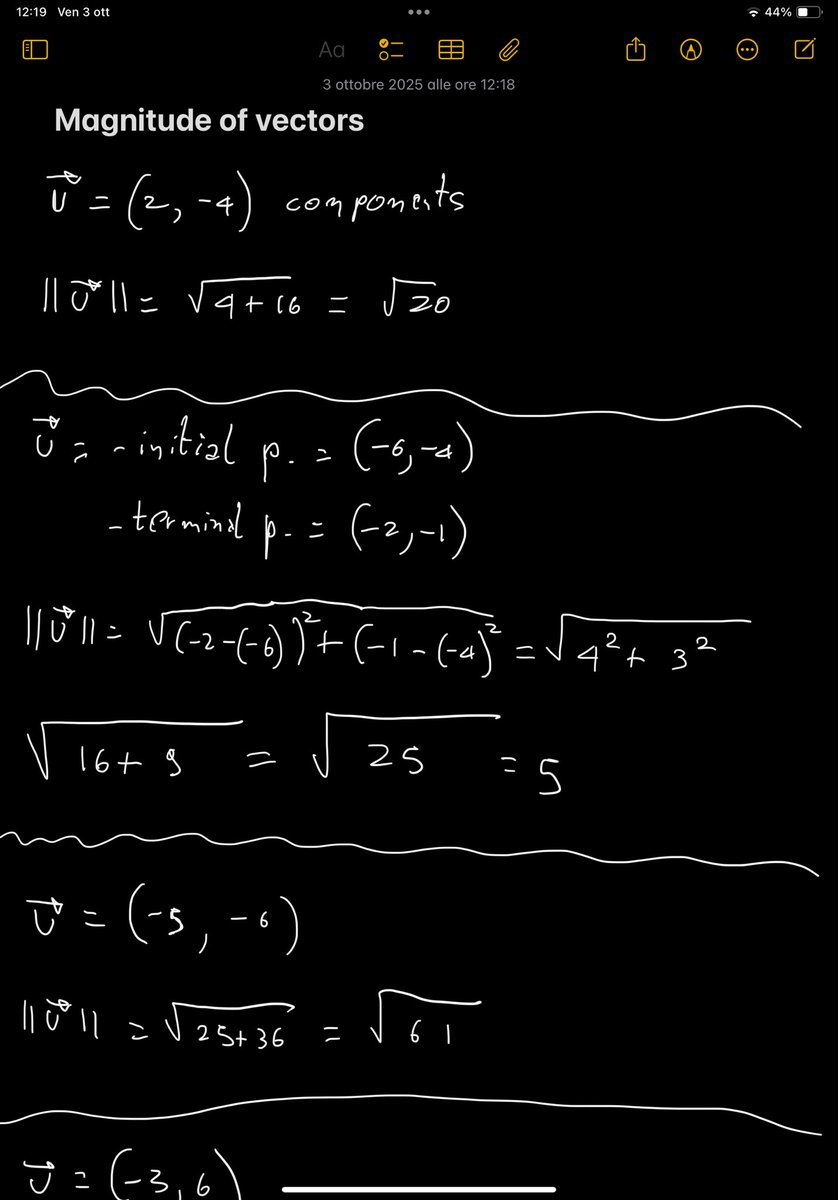 12:19 Ven 3 ott
44%
Aa
3 ottobre 2025 alle ore 12:18
Magnitude of vectors
v⃗ = (2, -4) components
||v⃗|| = √(4+16) = √20
v⃗ = - initial p. = (-6, -4)
- terminal p. = (-2, -1)
||v⃗|| = √((-2-(-6))² + (-1-(-4)²) = √(4² + 3²)
√(16+9) = √25 = 5
v⃗ = (-5, -6)
||v⃗|| = √(25+36) = √61
v⃗ = (-3, 6)